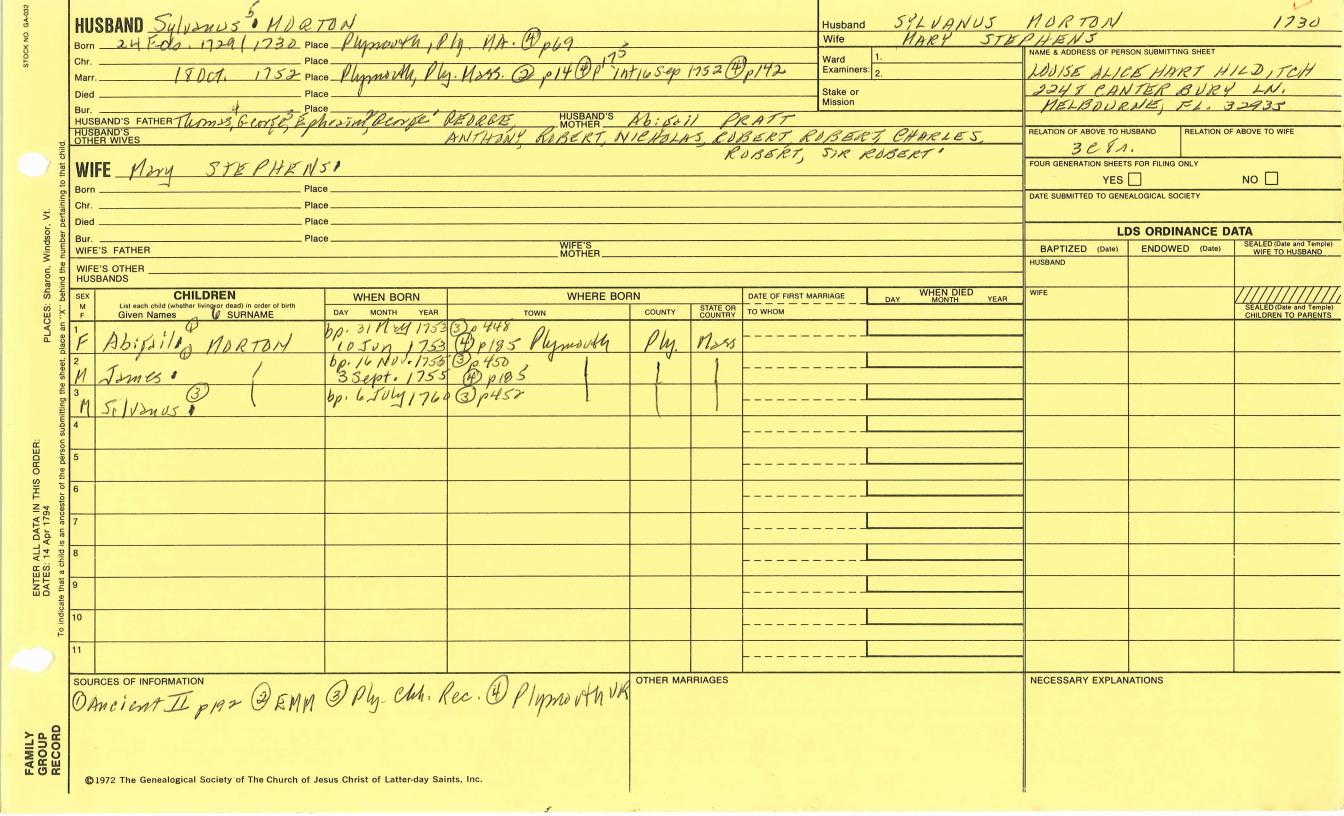 STOCK NO. GA-032
HUSBAND Sylvanus 5 MORTON
Born 24 Feb. 1729/1730 Place Plymouth, Ply. MA. ④ p69
Chr. Place
Marr. 18 Oct. 1752 Place Plymouth, Ply. Mass. ② p14 ④ p 175 int 16 Sep 1752 ④ p142
Died Place
Bur. Place
HUSBAND'S FATHER Thomas 4, George 3, Ephraim 2, George 1 GEORGE, HUSBAND'S MOTHER Abigail PRATT
HUSBAND'S OTHER WIVES ANTHONY, ROBERT, NICHOLAS, ROBERT, ROBERT, CHARLES,
ROBERT, SIR ROBERT
WIFE Mary STEPHENS
Born Place
Chr. Place
Died Place
Bur. Place
WIFE'S FATHER WIFE'S MOTHER
WIFE'S OTHER HUSBANDS
Husband SYLVANUS MORTON 1730
Wife MARY STEPHENS
Ward Examiners 1.
2.
Stake or Mission
NAME & ADDRESS OF PERSON SUBMITTING SHEET
LOUISE ALICE HART HILDITCH
2248 CANTERBURY LN.
MELBOURNE, FL. 32935
RELATION OF ABOVE TO HUSBAND RELATION OF ABOVE TO WIFE
3C8r.
FOUR GENERATION SHEETS FOR FILING ONLY
YES NO
DATE SUBMITTED TO GENEALOGICAL SOCIETY
LDS ORDINANCE DATA
BAPTIZED (Date) ENDOWED (Date) SEALED (Date and Temple) WIFE TO HUSBAND
HUSBAND
WIFE
SEALED (Date and Temple) CHILDREN TO PARENTS
SEX M F
CHILDREN
List each child (whether living or dead) in order of birth
Given Names SURNAME
WHEN BORN
DAY MONTH YEAR
WHERE BORN
TOWN COUNTY STATE OR COUNTRY
DATE OF FIRST MARRIAGE
TO WHOM
WHEN DIED
DAY MONTH YEAR
1 bp. 31 May 1753 ③ p448
F Abigail MORTON 10 Jun 1753 ④ p185 Plymouth Ply. Mass
2 bp. 16 Nov. 1755 ③ p450
M James 3 Sept. 1755 ④ p185
3 ③ bp. 6 July 1760 ③ p452
M Silvanus
4
5
6
7
8
9
10
11
SOURCES OF INFORMATION
① Ancient II p192 ② EMM ③ Ply. Chh. Rec. ④ Plymouth VR
OTHER MARRIAGES
NECESSARY EXPLANATIONS
©1972 The Genealogical Society of The Church of Jesus Christ of Latter-day Saints, Inc.
FAMILY GROUP RECORD
ENTER ALL DATA IN THIS ORDER:
DATES: 14 Apr 1794
PLACES: Sharon, Windsor, Vt.
To indicate that a child is an ancestor of the person submitting the sheet, place an "X" behind the number pertaining to that child.